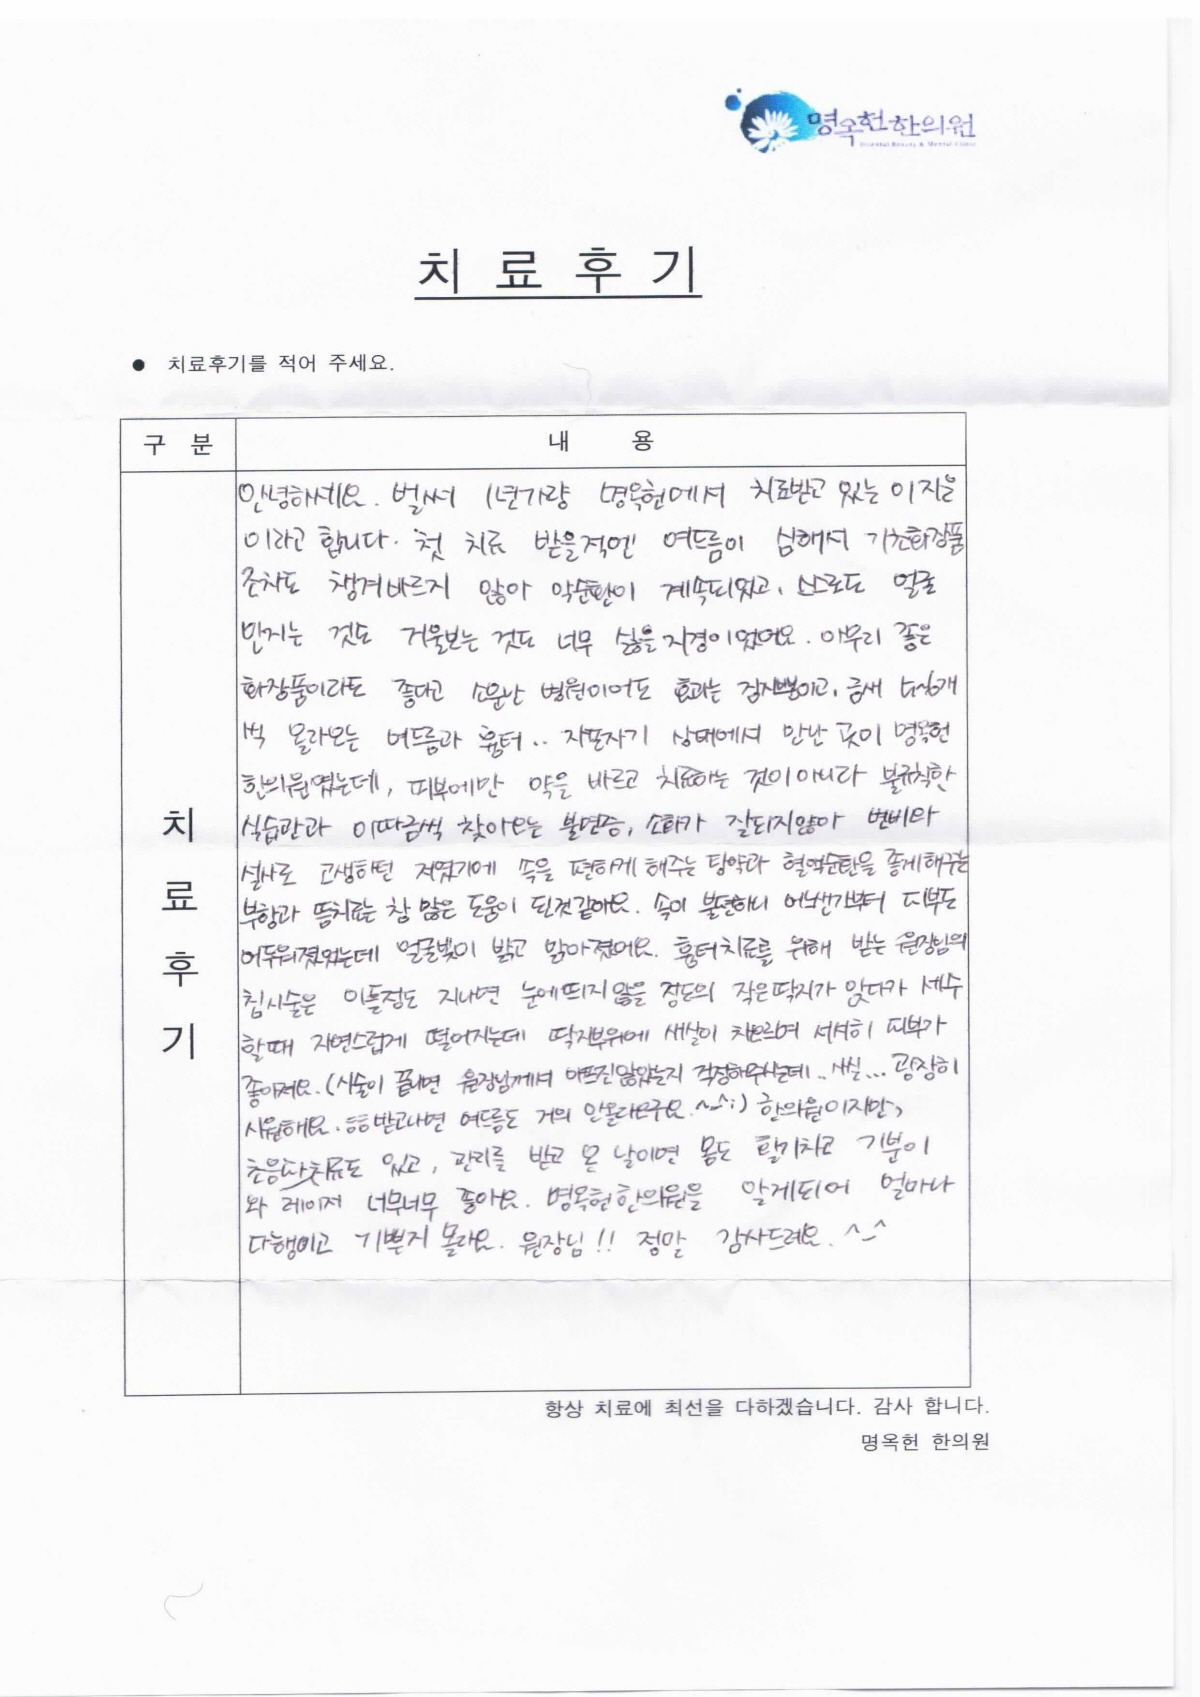 명옥헌한의원
Oriental Beauty & Mental Clinic
치 료 후 기
● 치료후기를 적어 주세요.
구 분
내 용
안녕하세요. 벌써 1년가량 명옥헌에서 치료받고 있는 이지은
이라고 합니다. 첫 치료 받을적엔 여드름이 심해서 기초화장품
조차도 챙겨바르지 않아 악순환이 계속되었고, 스스로도 얼굴
만지는 것도 거울보는 것도 너무 싫을 지경이었어요. 아무리 좋은
화장품이라도 좋다고 소문난 병원이어도 효과는 잠시뿐이고, 금새
씩 올라오는 여드름과 흉터.. 자포자기 상태에서 만난 곳이 명옥헌
한의원였는데, 피부에만 약을 바르고 치료하는 것이 아니라 불규칙한
식습관과 이따금씩 찾아오는 불면증, 소화가 잘되지않아 변비와
설사로 고생하던 저였기에 속을 편하게 해주는 탕약과 혈액순환을 좋게해주는
부항과 뜸치료는 참 많은 도움이 된것같아요. 속이 불편하니 어느샌가부터 피부도
어두워졌었는데 얼굴빛이 밝고 맑아졌어요. 흉터치료를 위해 받는 원장님의
침시술은 이틀정도 지나면 눈에띄지않을 정도의 작은딱지가 앉다가 세수
할때 자연스럽게 떨어지는데 딱지부위에 새살이 차오르며 서서히 피부가
좋아져요. (시술이 끝나면 원장님께서 아프진않았는지 걱정해주시는데.. 사실... 굉장히
시원해요. 받고나면 여드름도 거의 안올라오구요. ^-^;) 한의원이지만,
초음파치료도 있고, 관리를 받고 온 날이면 몸도 활기차고 기분이
와 레이저 너무너무 좋아요. 명옥헌한의원을 알게되어 얼마나
다행이고 기쁜지 몰라요. 원장님!! 정말 감사드려요. ^-^
치
료
후
기
항상 치료에 최선을 다하겠습니다. 감사 합니다.
명옥헌 한의원